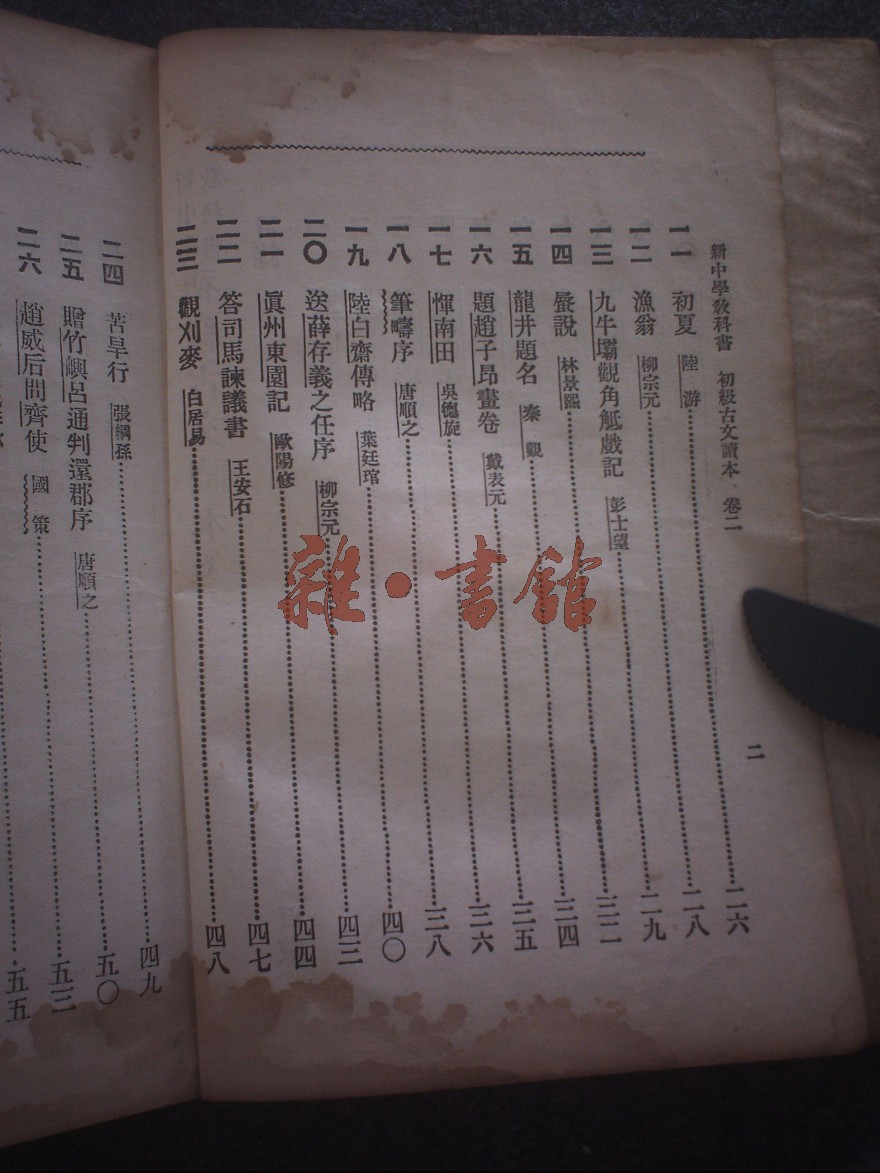 新中學教科書 初級古文讀本 卷二
二
一一 初夏 陸游 二六
一二 漁翁 柳宗元 二八
一三 九牛壩觀角觝戲記 彭士望 二九
一四 蜃說 林景熙 三二
一五 龍井題名 秦觀 三四
一六 題趙子昂畫卷 戴表元 三五
一七 惲南田 吳德旋 三六
一八 筆疇序 唐順之 三八
一九 陸白齋傳略 葉廷琯 四〇
二〇 送薛存義之任序 柳宗元 四三
二一 眞州東園記 歐陽修 四四
二二 答司馬諫議書 王安石 四七
二三 觀刈麥 白居易 四八
二四 苦旱行 張綱孫 四九
二五 贈竹嶼呂通判還郡序 唐順之 五〇
二六 趙威后問齊使 國策 五三
五五
雜·書館